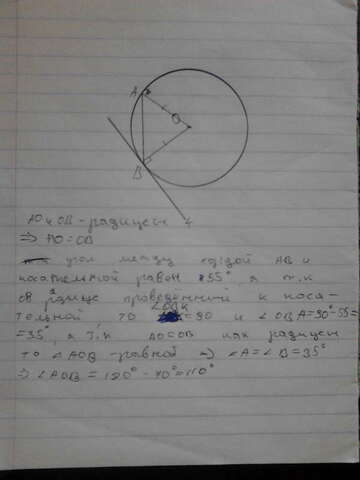 A
O
B
AO и OB - радиусы
=> AO = OB
угол между хордой AB и
касательной равен 55°, а т.к
OB радиус проведённый к каса-
тельной то =90 и ∠OBA=90-55=
∠OBK
=35°, а т.к AO=OB как радиусы
то △AOB - равноб => ∠A=∠B=35°
=> ∠AOB = 180° - 70°=110°